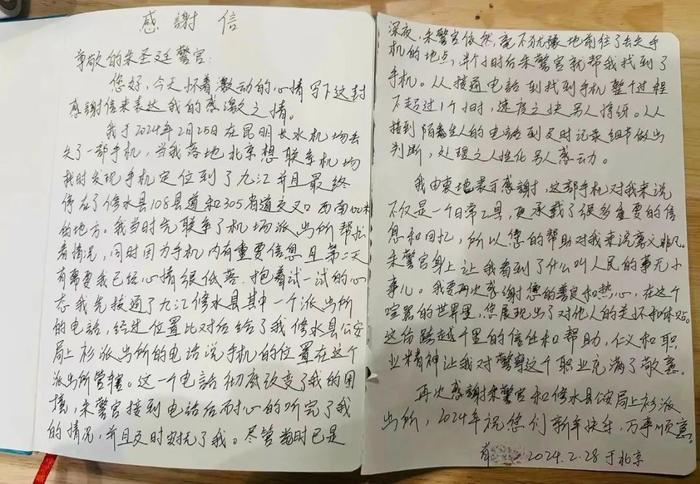 感謝信
尊敬的朱圣廷警官：
您好，今天怀着激动的心情写下这封
感謝信来表达我的感激之情。
我于2024年2月25日在昆明长水机场丢
失了一部手机，当我落地北京想联系机场
找时发现手机定位到了九江并且最终
停在了修水县108县道和305省道交叉口西南
的地方。我当时先联系了机场派出所帮忙
看情况，同时因为手机内有重要信息且第二天
有需要我已经心情很低落。抱着试一试的心
态我先接通了九江修水县其中一个派出所
的电话，经过位置比对后给了我修水县公安
局上杉派出所的电话说手机的位置在这个
派出所管辖。这一个电話彻底改变了我的困
境，朱警官接到电话后耐心的听完了我
的情况，并且及时安抚了我。尽管当时已是
深夜，朱警官依然毫不犹豫地前往了丢失手
机的地点，半小时后朱警官就帮我找到了
手机。从接通电話到找到手机整个过程
不超过1个小时，速度之快另人惊讶。从
接到陌生人的电话到及时记录细节做出
判断，处理之人性化另人感动。
我由衷地表示感謝，这部手机对我来说
不仅是一个日常工具，更承载了很多重要的信
息和回忆，所以您的帮助对我来说意义非凡。
朱警官身上让我看到了什么叫人民的事无小
事儿。我要再次感谢您的善良和热心，在这个
喧嚣的世界里，您展现出了对他人的关怀和
这份跨越千里的信任和帮助，仁义和职
业精神让我对警察这个职业充满了敬意。
再次感謝朱警官和修水县公安局上杉派
出所，2024年祝您们新年快乐，万事顺意！
2024.2.28于北京